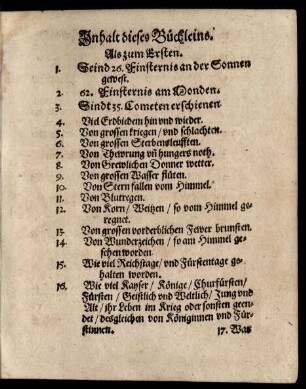 Inhalt dieses Büchleins.
Als zum Ersten.
1. Seind 26. Finsternis an der Sonnen
gewest.
2. 62. Finsternis am Monden.
3. Sindt 35. Cometen erschienen.
4. Viel Erdbieden hin vnd wieder.
5. Von grossen kriegen / vnd schlachten.
6. Von grossen Sterbensleufften.
7. Von Thewrung vñ hungers noth.
8. Von Grewlichen Donner wetter.
9. Von grossen Wasser flüten.
10. Von Stern fallen vom Himmel.
11. Von Blutregen.
12. Von Korn / Weitzen / so vom Himmel ge-
regnet.
13. Von grossen vorderblichen Fewer brunsten.
14. Von Wunderzeichen / so am Himmel ge-
sehen worden.
15. Wie viel Reichstage / vnd Fürstentage ge-
halten worden.
16. Wie viel Kayser / Könige / Churfürsten /
Fürsten / Geistlich vnd Weltlich / Jung vnd
Alt / ihr Leben im Krieg oder sonsten geen-
det / desgleichen von Königinnen vnd Für-
stinnen.
17. Was